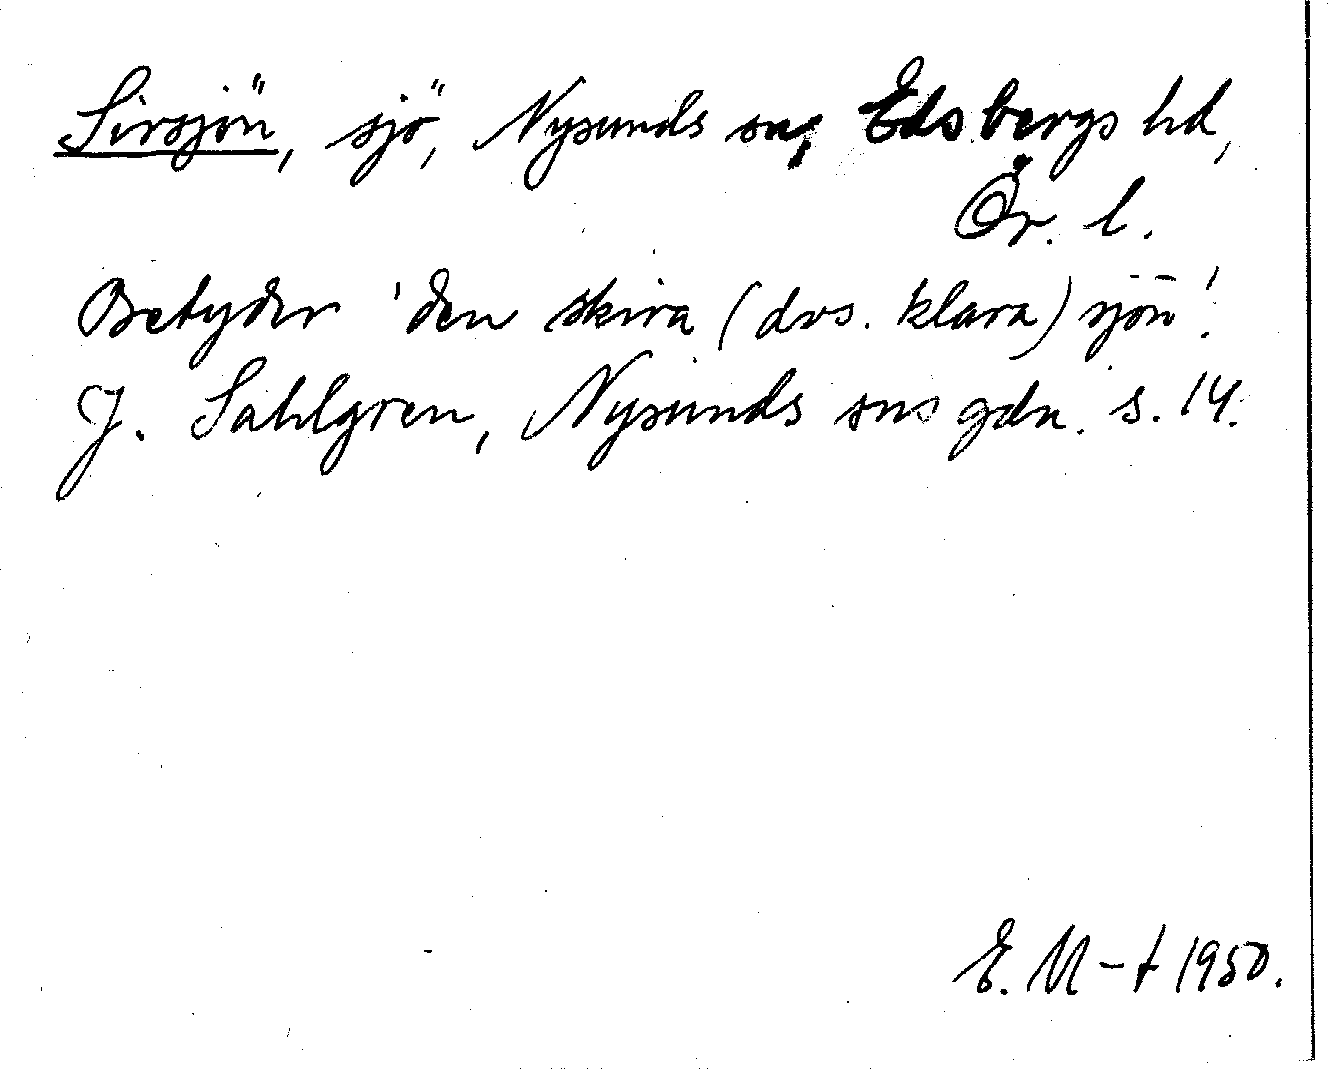 Sirsjön, sjö, Nysunds sn, Edsbergs hd,
Ör. l.
Betyder 'den skira (dvs. klara) sjön'.
J. Sahlgren, Nysunds sns gdn. s. 14.
E. M-t 1950.